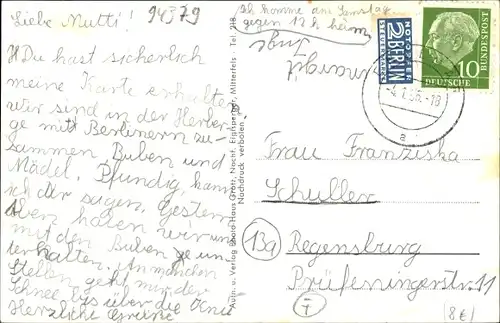 Liebe Mutti!
94379
Ich komme am Samstag
gegen 12 h heim
Inge
Du hast sicherlich
meine Karte erhalten
wir sind in der Herber-
ge mit Berlinern zu-
sammen Buben und
Mädel. Pfundig kann
ich dir sagen. Gestern
Aben haben wir uns
mit den Buben ge un-
terhalten. An manchen
Stellen geht mir der
Schnee bis über die Knie
Herzliche Grüße
Autn. u. Verlag Photo-Haus Grotz, Nachf. Mitterfels · Tel. 218
Nachdruck verboten
NOTOPFER
2 BERLIN
STEUERMARKE
DEUTSCHE
BUNDESPOST
10
-4.1.56.-18
a
Frau Franziska
Schuller
13a
Regensburg
Prüfeningerstr. 11
7
8€